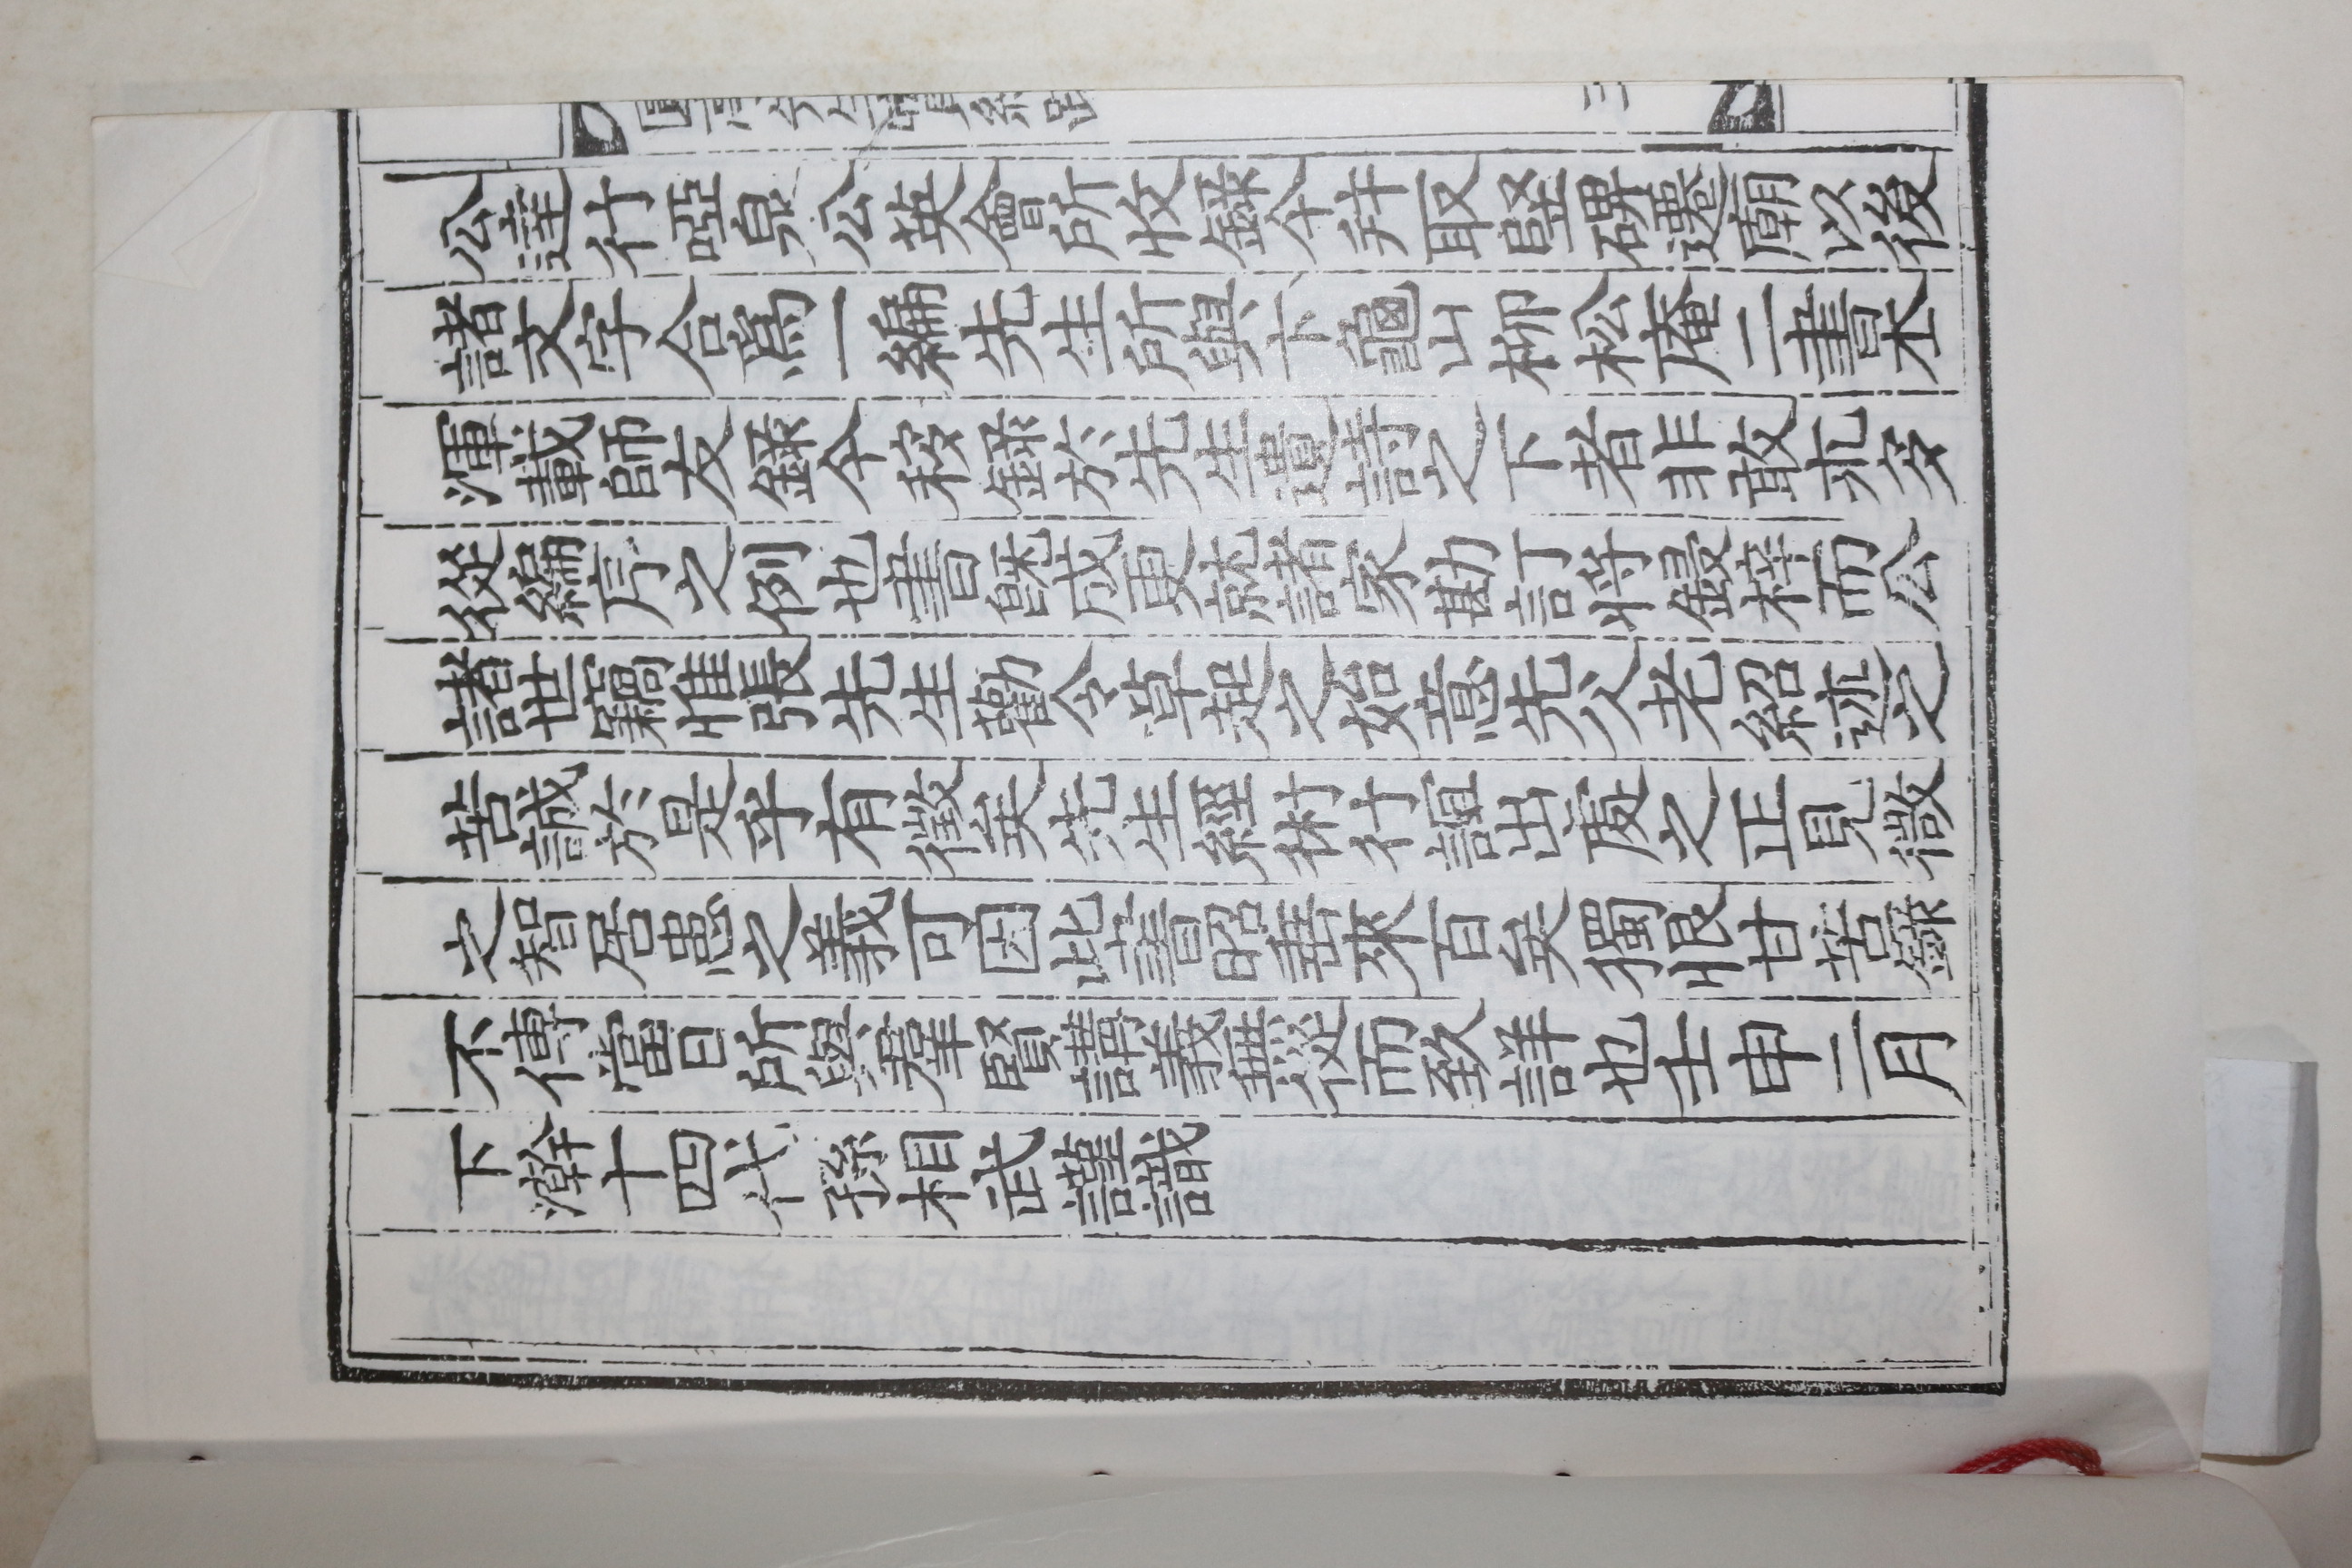 公達行啞泉公英會所收錄今幷取竪碑遷廟以後
諸文字合爲一編先生所與卞龜山柳松庵二書丕
渾載師友錄今移錄於先生遺詩之下者非敢朮多
從編序之例也書旣成更就諸家勘訂將鋟梓而公
諸世竊惟張先生勸令草起之始意先父老紹述之
苦誠於是乎有徵矣先生經術行誼出處之正見微
之智居患之義可因此書昭垂來百矣獨恨甘苦錄
不傳當日所與羣賢講義無從而致詳也壬申二月
下澣十四代孫相武謹識
先生實紀跋
三